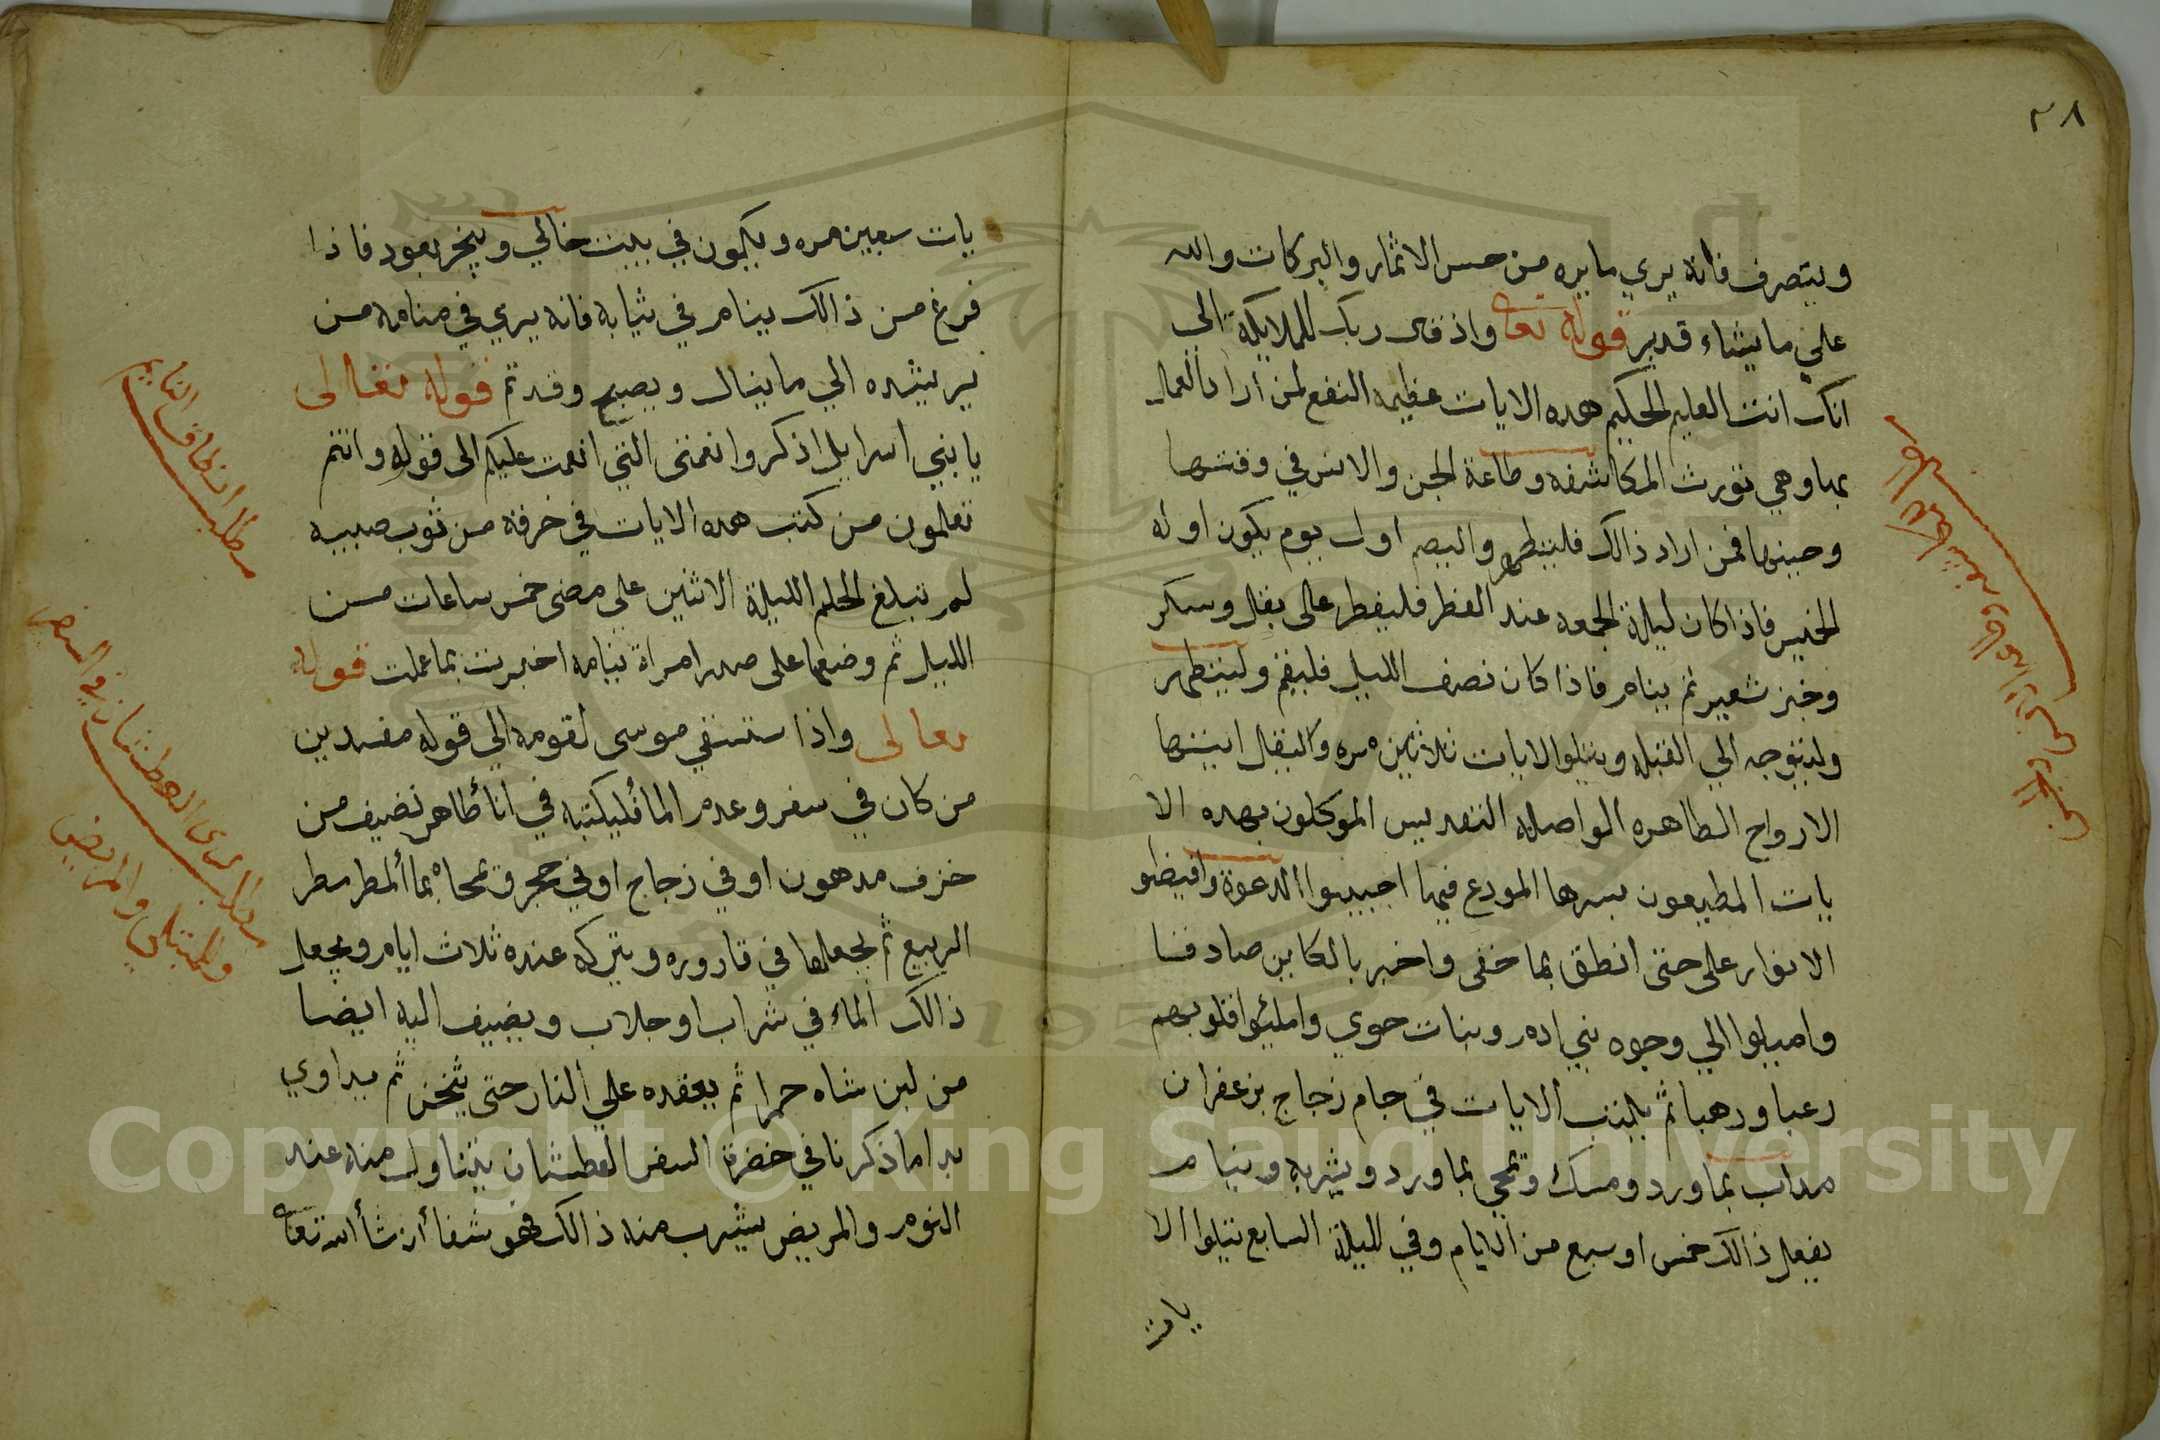 ٢٨
ويتصرف فانه يري مايره من حسن الاثمار والبركات والله
علي مايشاء قدير قوله تعالى واذ قال ربك للملايكة الي
انك انت العليم الحكيم هده الايات عظيمه النفع لمن اراد العمل
بها وهي تورث المكاشفه وطاعة الجن والانس في وقتها
وحينها فمن اراد ذالك فليتطهر واليصم اول يوم يكون اوله
الخميس فاذا كان ليلة الجمعه عند الفطر فليفطر على بقل وسكر
وخبز شعير ثم ينام فاذا كان نصف الليل فليقم وليتطهر
وليتوجه الي القبله ويتلوا الايات ثلاثين مره والتقال ايتتها
الارواح الطاهره المواصله التقديس الموكلون بهده الا
يات المطيعون بسرها المودع فيها اجيبوا الدعوة وافيظو
الانوار على حتى انطق بما خفى واخبر بالكاين صادقا
واميلوا الي وجوه بني ادم وبنات حوي واملئوا قلوبهم
رعبا ورهبا ثم يكتب الايات في جام زجاج بزعفران
مداب بماورد ومسك وتمحي بماورد ويشربه وينام
يفعل ذالك خمس او سبع من الايام وفي لليلة السابع يتلوا الا
يات
يات سبعين مره ويكون في بيت خالي ويبخر بعود فاذا
فرغ من ذالك ينام في ثيابه فانه يري في منامه من
يرشده الي ماينال ويصبح وقد تم قوله تعالى
يابني اسرايل اذكروا نعمتي التي انعمت عليكم الى قوله وانتم
تعلمون من كتب هده الايات في خرقه من ثوب صبيه
لم تبلغ الحلم الليلة الاثنين علي مضى خمس ساعات من
الليل ثم وضعها على صدر امراة نيامه اخبرت بما عملت قوله
تعالى واذا ستسقي موسى لقومه الي قوله مفسدين
من كان في سفر وعدم الما فليكتبه في انا طاهر نضيف من
خزف مدهون او في زجاج او في حجر وتمحاه بما المطر مطر
الربيع ثم يجعلها في قاروره ويتركه عنده ثلاث ايام ويجعل
ذالك الماء في شراب او جلاب ويضيف اليه ايضا
من لبن شاه حمرا ثم يعقده علي النار حتى يثخن ثم يداوي
بدا ماذكرنا في حضرة السفر العطشان يتناول منه عند
النوم والمريض يشرب منه ذالك فهو شفا ان شا الله تعالى
مطلب انطاق النايم
العطشان في السفر
والمريض
Copyright © King Saud University